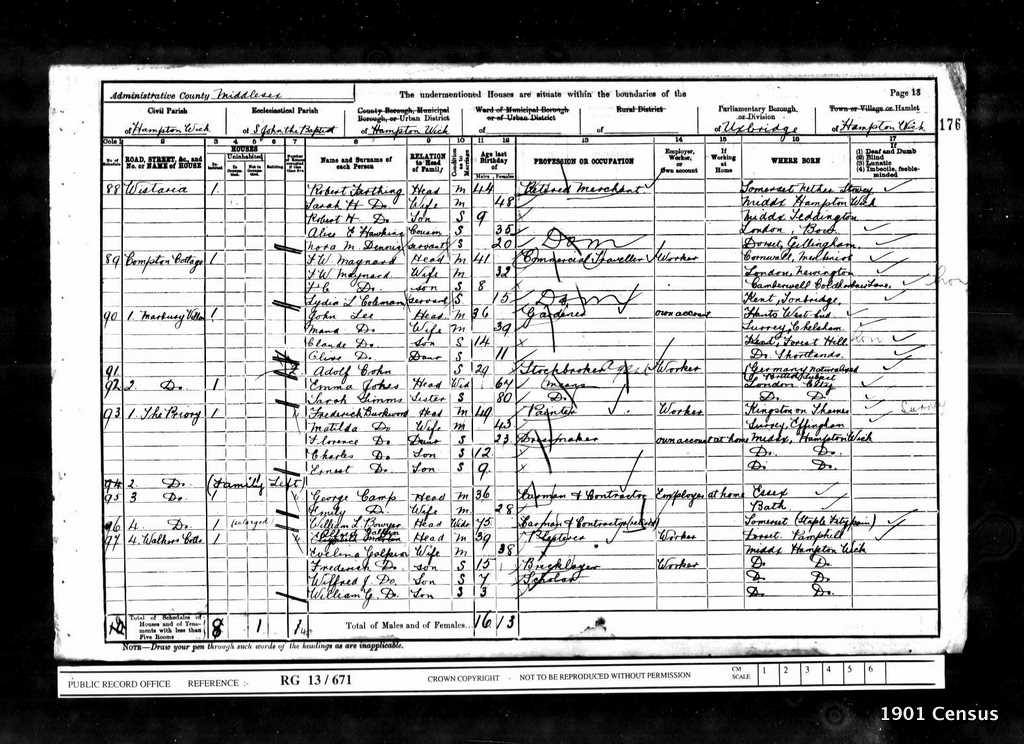 Administrative County Middlesex
The undermentioned Houses are situate within the boundaries of the
Page 13
176
Civil Parish
of Hampton Wick
Ecclesiastical Parish
of S John the Baptist
County Borough, Municipal Borough, or Urban District
of Hampton Wick
Ward of Municipal Borough or of Urban District
of
Rural District
of
Parliamentary Borough, or Division
of Uxbridge
Town or Village or Hamlet
of Hampton Wick
ROAD, STREET, &c., and No. or NAME of HOUSE
HOUSES
Name and Surname of each Person
RELATION to Head of Family
Condition as to Marriage
Age last Birthday of
Males Females
PROFESSION OR OCCUPATION
Employer, Worker, or Own account
If Working at Home
WHERE BORN
If (1) Deaf and Dumb (2) Blind (3) Lunatic (4) Imbecile, feeble-minded
88 Wistaria 1 Robert Farthing Head M 44 Retired Merchant Somerset Nether Stowey
Sarah H Do. Wife M 48 Middx Hampton Wick
Robert H Do. Son S 9 Middx Teddington
Alice Hawkins Cousin S 35 London, Bow
Nora M Servant S 20 Dom Dorset, Gillingham
89 Compton Cottage 1 F W Maynard Head M 41 Commercial Traveller Worker Cornwall,
F W Maynard Wife M 32 London, Newington
Do. Son S 8 Camberwell Coldharbour Lane
Lydia L Coleman Servant S 15 Dom Kent, Tonbridge
90 1 Villa 1 John Lee Head M 36 Gardener own account Hants West End
Maud Do. Wife M 39 Surrey, Chelsham
Claude Do. Son S 14 Kent, Forest Hill
Olive Do. Daur S 11 Do. Shortlands
91 Adolf Cohn S 29 Stockbroker Worker Germany naturalised British Subject
92 2 Do. 1 Emma Jokes Head Wid 64 London City
Sarah Simms Sister S 80 Do. Do. Do.
93 1 The Priory 1 Frederick Head M 49 Painter Worker Kingston on Thames
Matilda Do Wife M 45 Surrey, Effingham
Florence Do Daur S 23 Dressmaker own account at home Middx, Hampton Wick
Charles Do Son S 12 Do. Do.
Ernest Do. Son S 9 Do Do.
94 2 Do. (Family Left)
95 3 Do. 1 George Camp Head M 36 Carman & Contractor Employer at home Essex
Emily Do. Wife M 28 Bath
96 4 Do. 1 William L Bowyer Head Wid 75 Carman & Contractor (retired) Somerset (Staple Fitzpaine)
97 4 Walkers Cotts 1 Head M 39 Plasterer Worker Dorset. Pamphill
Evelina Wife M 38 Middx Hampton Wick
Frederick Do. Son S 15 Bricklayer Worker Do. Do.
Wilfred J. Do. Son S 7 Scholar Do Do.
William G. Do. Son S 3 Do Do.
Total of Schedules of Houses and of Tenements with less than Five Rooms 8 1 1
Total of Males and of Females... 16 13
NOTE—Draw your pen through such words of the headings as are inapplicable.
PUBLIC RECORD OFFICE REFERENCE :- RG 13/671 CROWN COPYRIGHT - NOT TO BE REPRODUCED WITHOUT PERMISSION CM SCALE 1 2 3 4 5 6
1901 Census